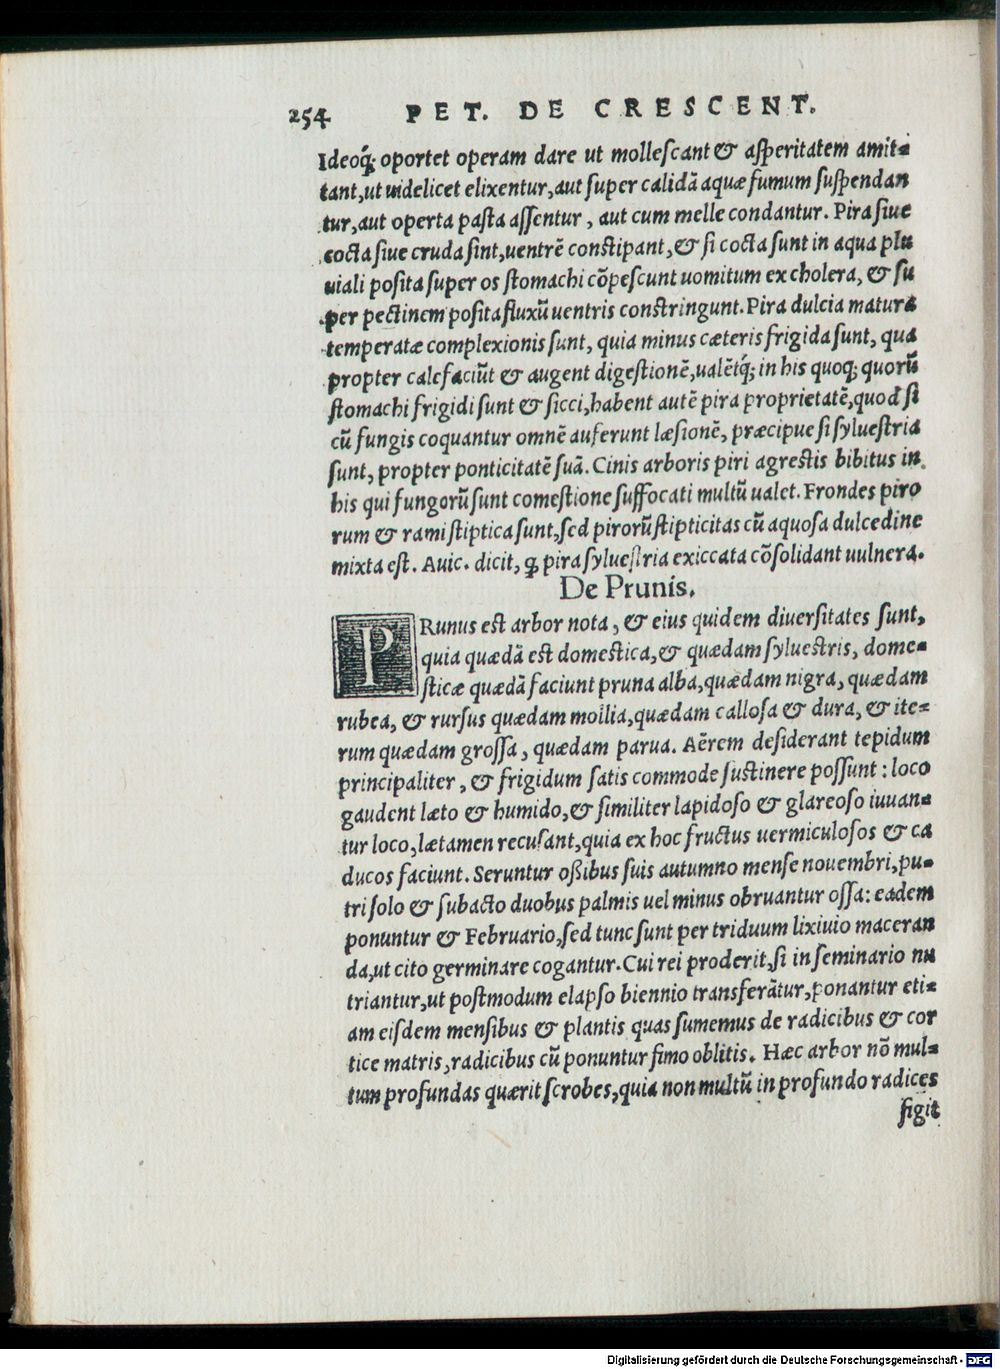 254 PET. DE CRESCENT.
Ideoq́; oportet operam dare ut mollescant & asperitatem amit-
tant, ut uidelicet elixentur, aut super calidā aquæ fumum suspendan
tur, aut operta pasta assentur, aut cum melle condantur. Pira siue
cocta siue cruda sint, uentrē constipant, & si cocta sunt in aqua plu
uiali posita super os stomachi cōpescunt uomitum ex cholera, & su
per pectinem posita fluxū uentris constringunt. Pira dulcia matura
temperatæ complexionis sunt, quia minus cæteris frigida sunt, qua
propter calefaciūt & augent digestionē, ualētq́; in his quoq; quorū
stomachi frigidi sunt & sicci, habent autē pira proprietatē, quod si
cū fungis coquantur omnē auferunt læsionē, præcipue si syluestria
sunt, propter ponticitatē suā. Cinis arboris piri agrestis bibitus in
his qui fungorū sunt comestione suffocati multū ualet. Frondes piro
rum & rami stiptica sunt, sed pirorū stipticitas cū aquosa dulcedine
mixta est. Auic. dicit, ꝙ pira syluestria exiccata cōsolidant uulnera.
De Prunis.
PRunus est arbor nota, & eius quidem diuersitates sunt,
quia quædā est domestica, & quædam syluestris, dome-
sticæ quædā faciunt pruna alba, quædam nigra, quædam
rubea, & rursus quædam mollia, quædam callosa & dura, & ite-
rum quædam grossa, quædam parua. Aërem desiderant tepidum
principaliter, & frigidum satis commode sustinere possunt: loco
gaudent læto & humido, & similiter lapidoso & glareoso iuuan-
tur loco, lætamen recusant, quia ex hoc fructus uermiculosos & ca
ducos faciunt. Seruntur oßibus suis autumno mense nouembri, pu-
tri solo & subacto duobus palmis uel minus obruantur ossa: eadem
ponuntur & Februario, sed tunc sunt per triduum lixiuio maceran
da, ut cito germinare cogantur. Cui rei proderit, si in seminario nu
triantur, ut postmodum elapso biennio transferātur, ponantur eti-
am eisdem mensibus & plantis quas sumemus de radicibus & cor
tice matris, radicibus cū ponuntur fimo oblitis. Hæc arbor nō mul-
tum profundas quærit scrobes, quia non multū in profundo radices
figit
Digitalisierung gefördert durch die Deutsche Forschungsgemeinschaft - DFG